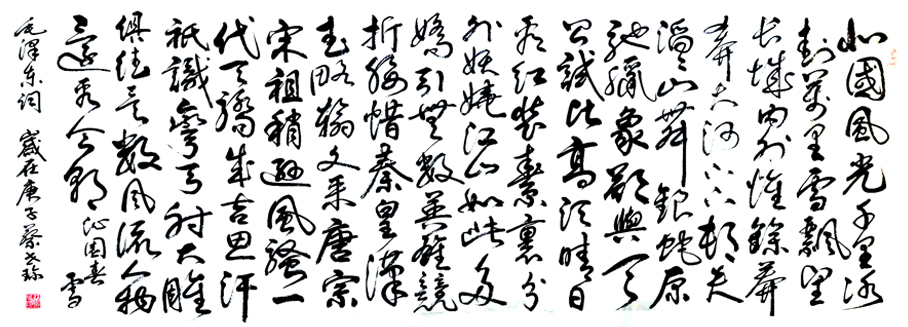 北國風光千里冰
封萬里雪飄望
長城內外惟餘莽
莽大河上下頓失
滔滔山舞銀蛇原
馳臘象欲與天
公試比高須晴日
看紅裝素裹分
外妖嬈江山如此多
嬌引無數英雄競
折腰惜秦皇漢
武略輸文采唐宗
宋祖稍遜風騷一
代天驕成吉思汗
祇識彎弓射大雕
俱往矣數風流人物
還看今朝 沁園春 雪
毛澤東詞 歲在庚子蔡